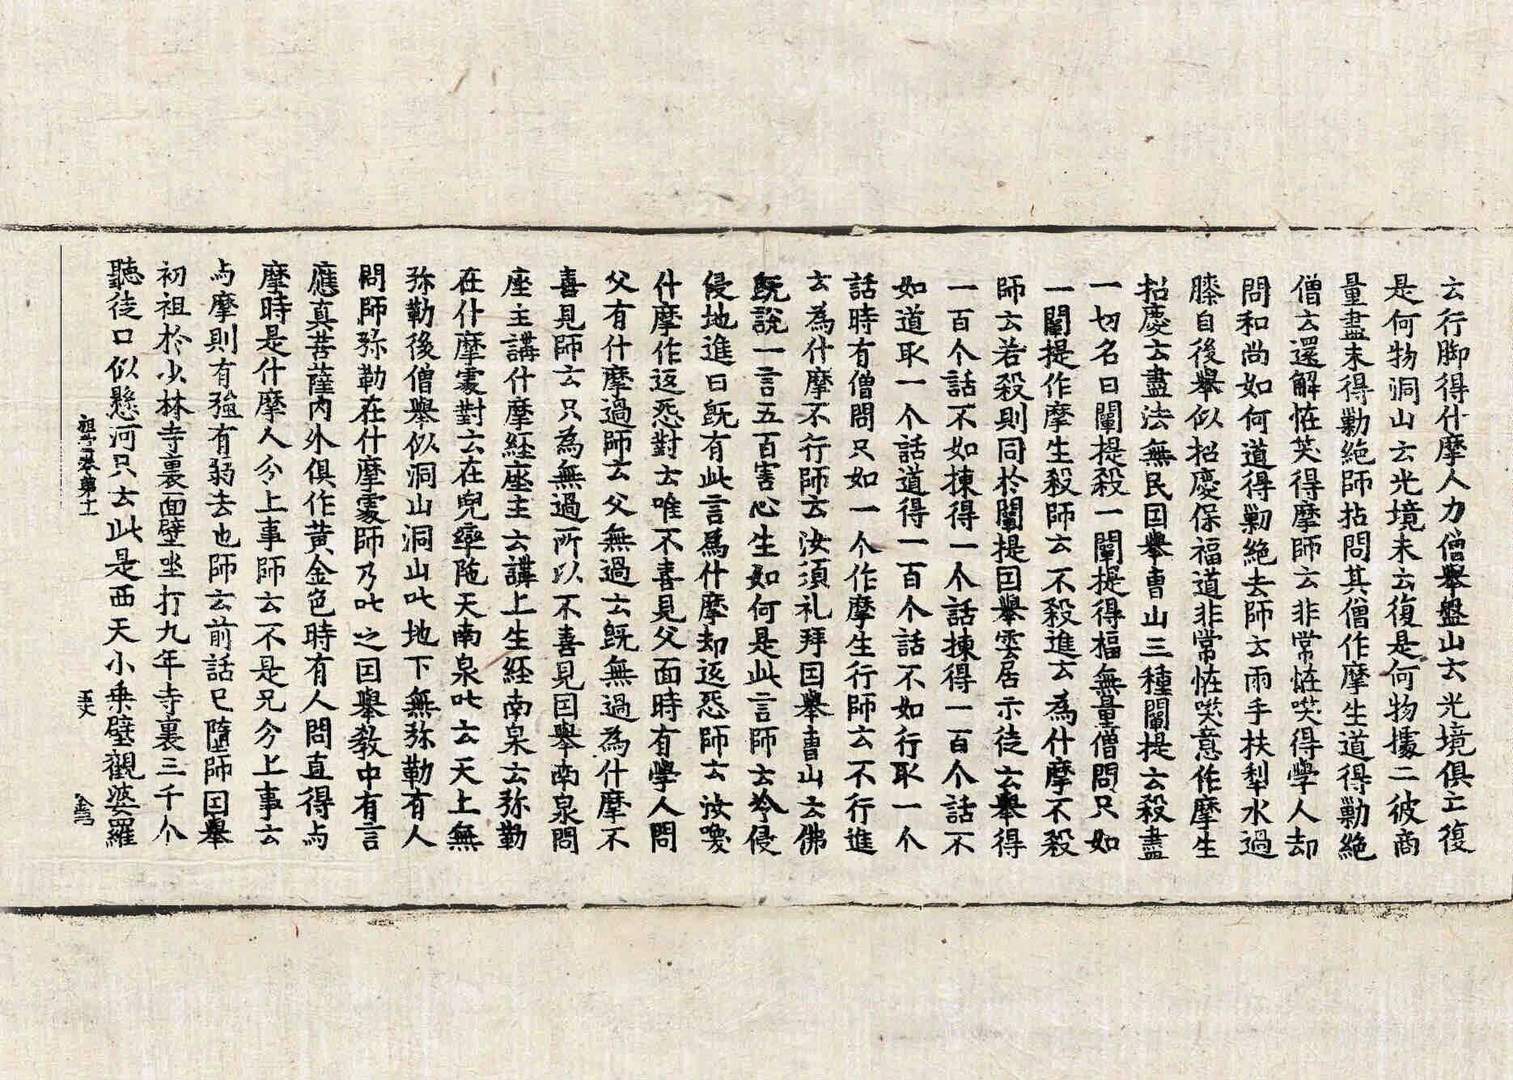 云行脚得什摩人力僧舉盤山云光境俱亡復
是何物洞山云光境未亡復是何物據二彼商
量盡未得勦絶師拈問其僧作摩生道得勦絶
僧云還解恠笑得摩師云非常恠笑得學人却
問和尚如何道得勦絶去師云兩手扶犁水過
膝自後舉似招慶保福道非常恠笑意作摩生
招慶云盡法無民因舉曺山三種闡提云殺盡
一切名曰闡提殺一闡提得福無量僧問只如
一闡提作摩生殺師云不殺進云為什摩不殺
師云若殺則同於闡提因舉雲居示徒云舉得
一百个話不如揀得一个話揀得一百个話不
如道取一个話道得一百个話不如行取一个
話時有僧問只如一个作摩生行師云不行進
云為什摩不行師云汝須礼拜因舉曺山云佛
旣說一言五百害心生如何是此言師云爹侵
侵地進曰旣有此言爲什摩却返惡師云汝喚
什摩作返惡對云唯不喜見父面時有學人問
父有什摩過師云父無過云旣無過為什摩不
喜見師云只為無過所以不喜見因舉南泉問
座主講什摩經座主云講上生經南泉云弥勒
在什摩處對云在兜率陁天南泉叱云天上無
弥勒後僧舉似洞山洞山叱地下無弥勒有人
問師弥勒在什摩處師乃叱之因舉教中有言
應真菩薩內外俱作黃金色時有人問直得与
摩時是什摩人分上事師云不是兄分上事云
与摩則有強有弱去也師云前話已墮師因舉
初祖於少林寺裏面壁坐打九年寺裏三千个
聽徒口似懸河只云此是西天小乘壁觀婆羅
祖堂卷第十一